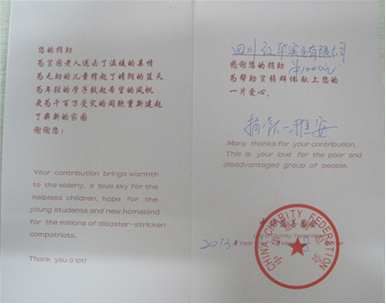 您的捐助
为贫困老人送去了温暖的亲情
为无助的儿童撑起了晴朗的蓝天
为年轻的学子鼓起希望的风帆
更为千百万受灾的同胞重新建起
了崭新的家园
谢谢您！
Your contribution brings warmth
to the elderly, a blue sky for the
helpless children, hope for the
young students and new homesand
for the millions of disaster-stricken
compatriots.
Thank you a lot!
四川 有限公司
感谢您的捐助
为帮助贫困群体献上您的
一片爱心。
捐款—雅安
Many thanks for your contribution,
This is your love for the poor and
disadvantaged group of people.
China Charity Federation
2013年 Year
CHINA CHARITY FEDERATION